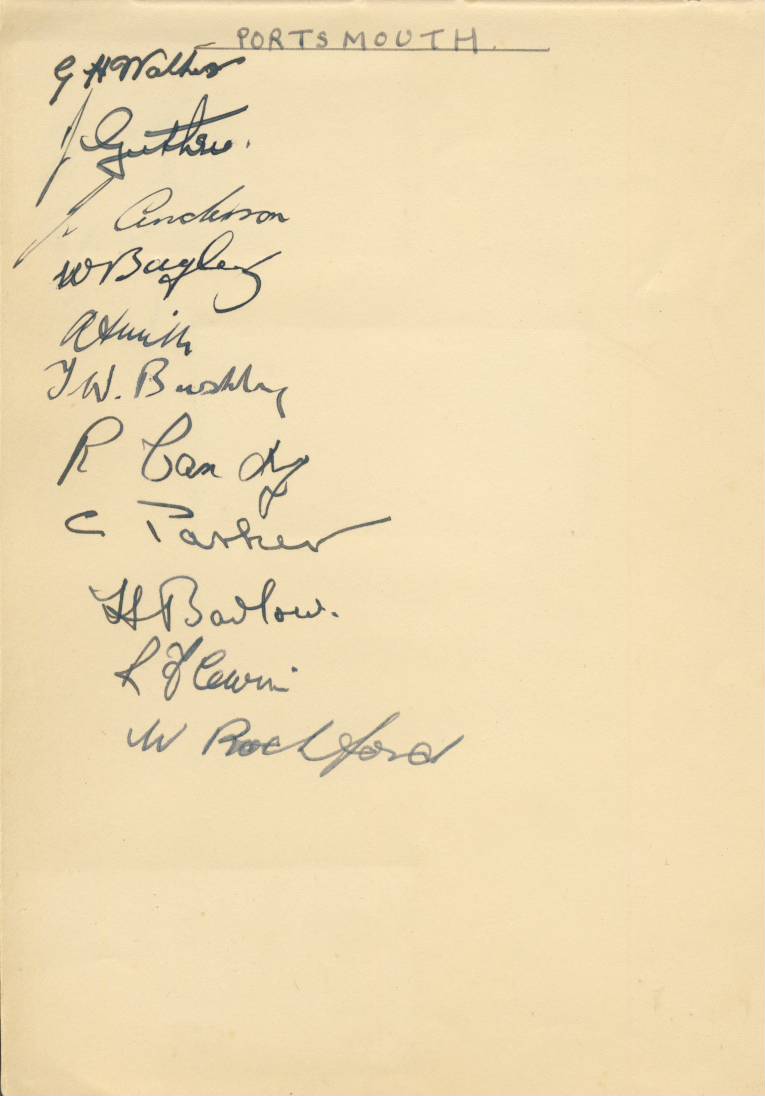 PORTSMOUTH.
G H Walker
J Guthrie.
J. Anderson
W Bagley
A Smith
T W. Bushby
R Candy
C Parker
H Barlow.
R Flewin
W Rochford